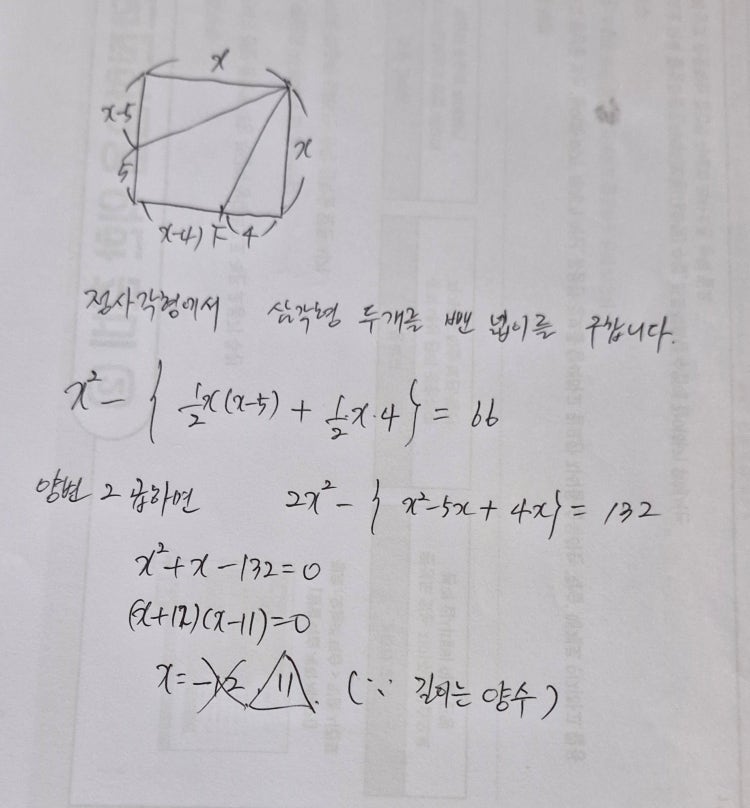 x
x-5
5
x
x-4) F 4
정사각형에서 삼각형 두개를 뺀 넓이를 구합니다.
x² - { 1/2 x(x-5) + 1/2 x·4 } = 66
양변 2 곱하면 2x² - { x²-5x + 4x } = 132
x² + x - 132 = 0
(x+12)(x-11)=0
x = -12, 11. (∵ 길이는 양수)